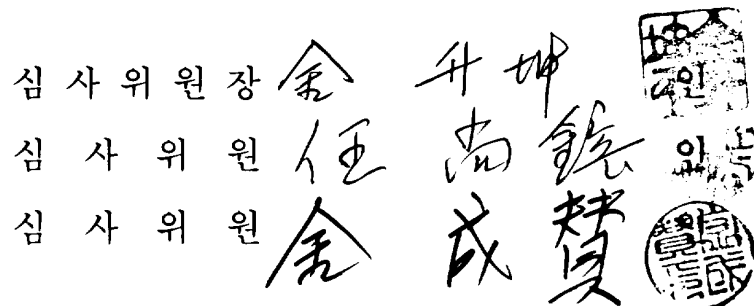 심사위원장 金 升 坤 인
심사위원 任 尚 인
심사위원 金 成 贊